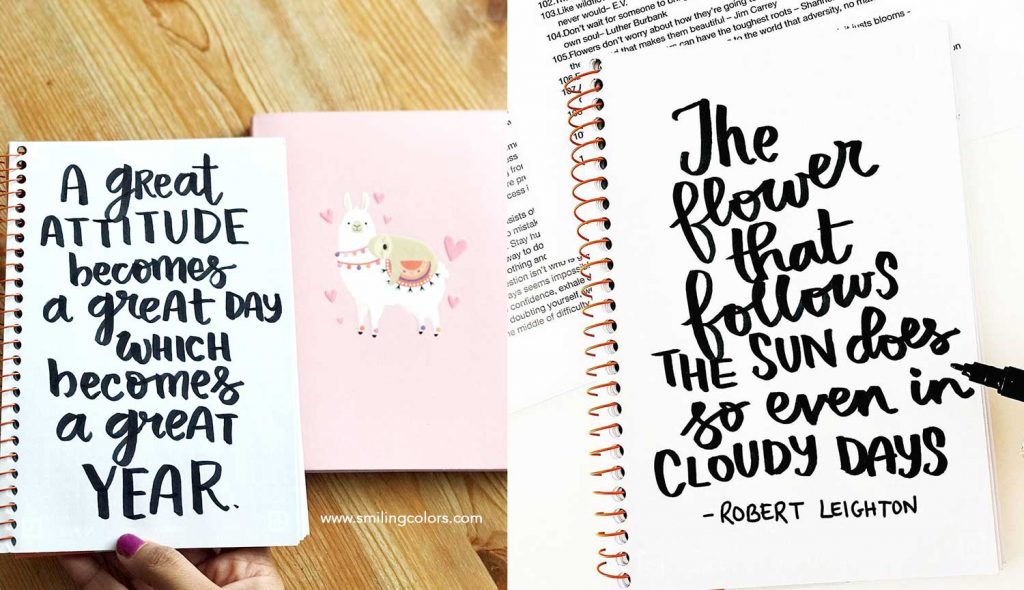 A great
ATTITUDE
becomes
a great DAY
WHICH
becomes
a great
YEAR.
www.smilingcolors.com
103.Like wildflow
never would– E.V.
104.Don't wait for someone to br
own soul– Luther Burbank
105.Flowers don't worry about how they're going
that makes them beautiful – Jim Carrey
can have the toughest roots – Shann
to the world that adversity, no ma
it justs blooms -
106.
107.
sists of
mistak
. Stay hu
way to do
othing and
stion isn't who is g
ays seems impossi
confidence, exhale
doubting yourself, w
e middle of difficulty
The
flower
that
follows
THE SUN does
so even in
CLOUDY DAYS
– ROBERT LEIGHTON